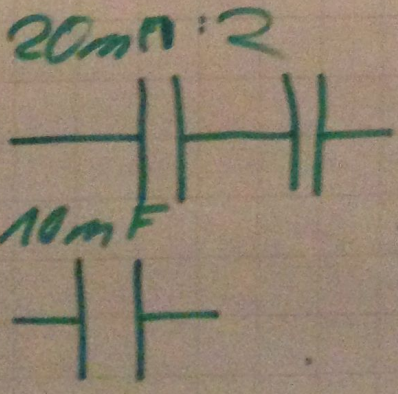 20mA:2
10mF